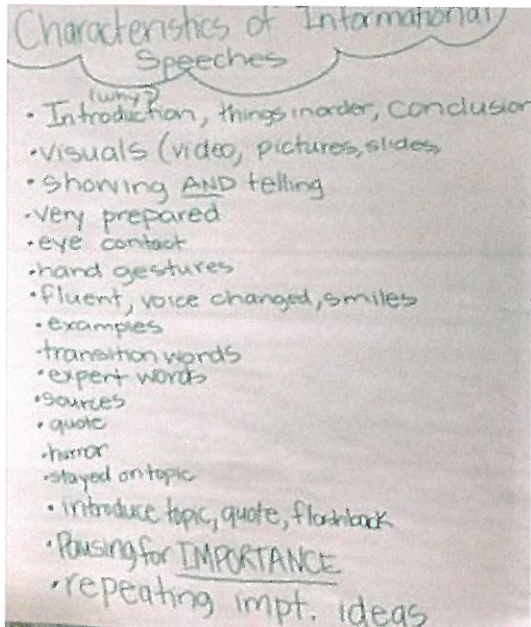 Characteristics of Informational
Speeches
(why?)
• Introduction, things in order, conclusion
• visuals (video, pictures, slides,
• showing AND telling
• very prepared
• eye contact
• hand gestures
• fluent, voice changed, smiles
• examples
• transition words
• expert words
• sources
• quote
• humor
• stayed on topic
• introduce topic, quote, flashback
• Pausing for IMPORTANCE
• repeating impt. ideas